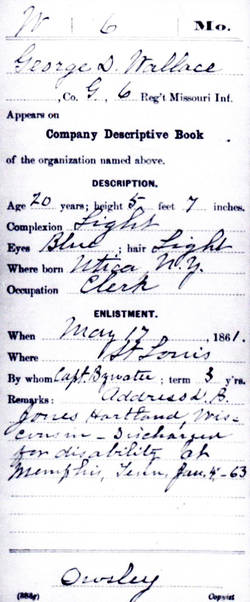 W 6 Mo.
George D. Wallace
, Co. G, 6 Reg't Missouri Inf.
Appears on
Company Descriptive Book
of the organization named above.
DESCRIPTION.
Age 20 years; height 5 feet 7 inches.
Complexion Light
Eyes Blue; hair Light
Where born Utica N.Y.
Occupation Clerk
ENLISTMENT.
When May 17, 1861.
Where St Louis
By whom Capt. Bywater; term 3 y'rs.
Remarks: Address D. B.
Jones Hartland, Wis-
consin - Discharged
for disability at
Memphis, Tenn, Jan. 4 - 63
Owsley
(383g) Copyist